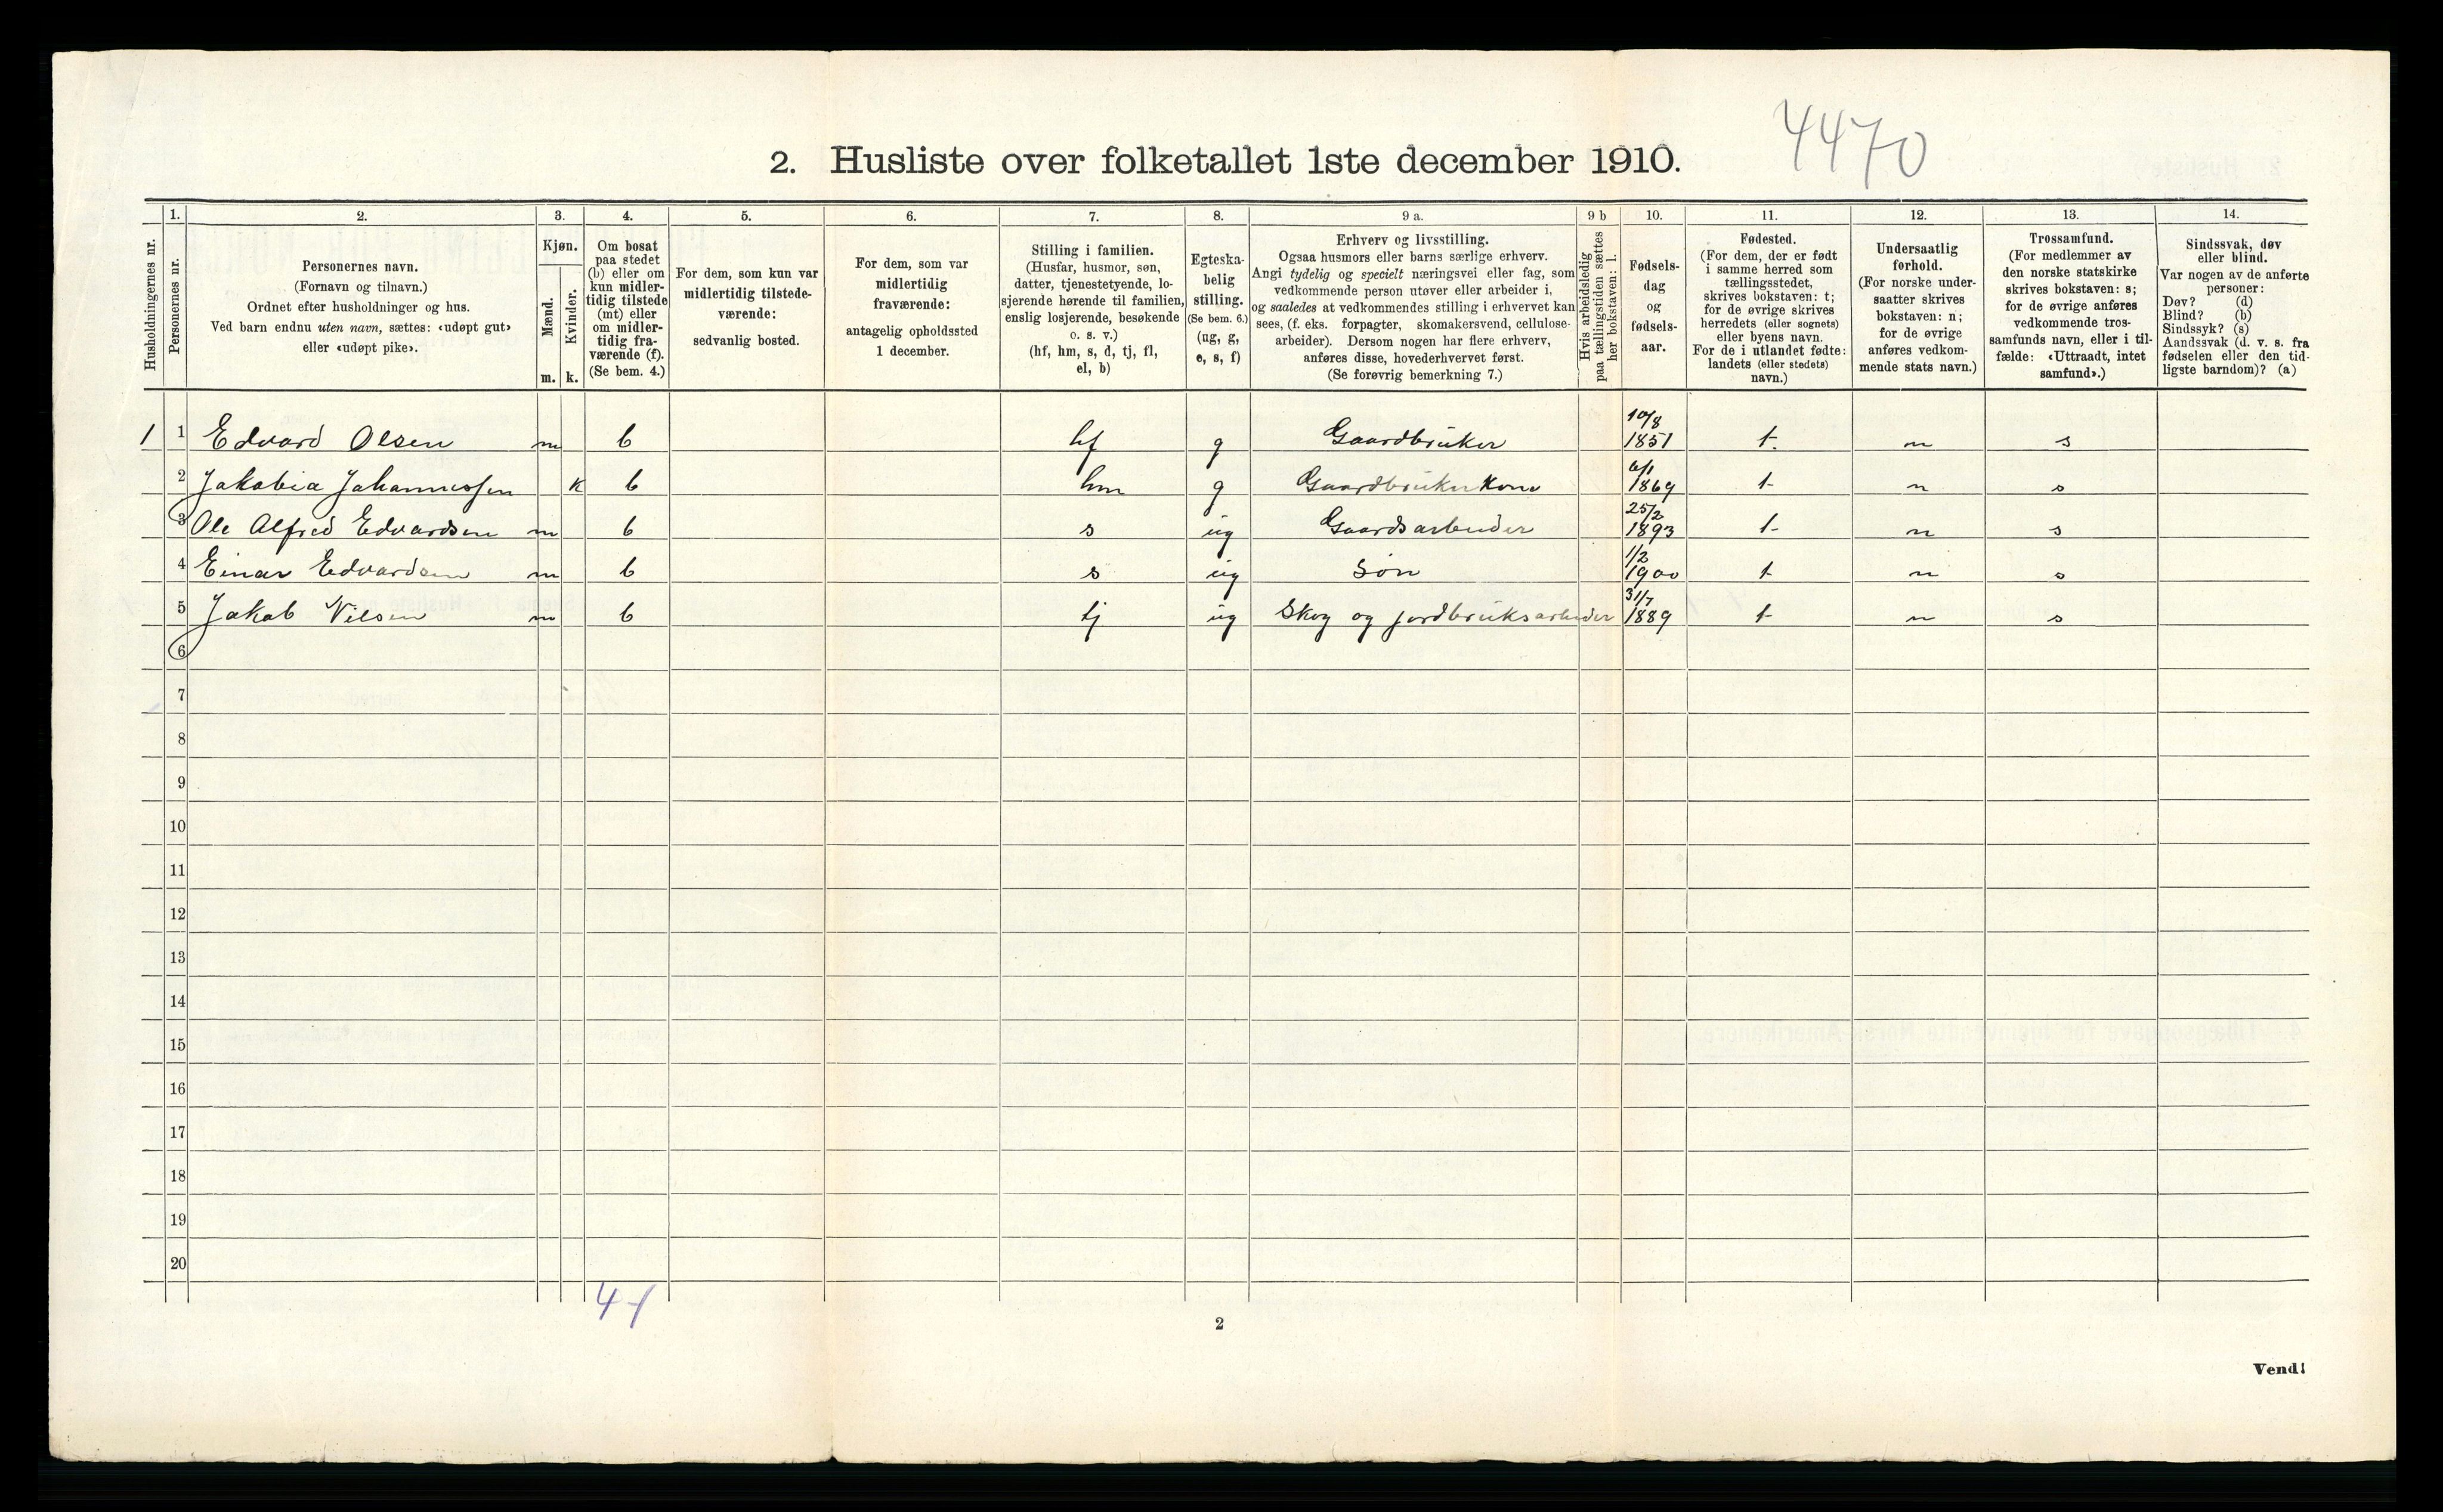 4470
2. Husliste over folketallet 1ste december 1910.
Husholdningernes nr.
1.
Personernes nr.
2.
Personernes navn.
(Fornavn og tilnavn.)
Ordnet efter husholdninger og hus.
Ved barn endnu uten navn, sættes: «udøpt gut»
eller «udøpt pike».
3.
Kjøn.
Mænd.
Kvinder.
m. k.
4.
Om bosat
paa stedet
(b) eller om
kun midler-
tidig tilstede
(mt) eller
om midler-
tidig fra-
værende (f).
(Se bem. 4.)
5.
For dem, som kun var
midlertidig tilstede-
værende:
sedvanlig bosted.
6.
For dem, som var
midlertidig
fraværende:
antagelig opholdssted
1 december.
7.
Stilling i familien.
(Husfar, husmor, søn,
datter, tjenestetyende, lo-
sjerende hørende til familien,
enslig losjerende, besøkende
o. s. v.)
(hf, hm, s, d, tj, fl,
el, b)
8.
Egteska-
belig
stilling.
(Se bem. 6.)
(ug, g,
e, s, f)
9 a.
Erhverv og livsstilling.
Ogsaa husmors eller barns særlige erhverv.
Angi tydelig og specielt næringsvei eller fag, som
vedkommende person utøver eller arbeider i,
og saaledes at vedkommendes stilling i erhvervet kan
sees, (f. eks. forpagter, skomakersvend, cellulose-
arbeider). Dersom nogen har flere erhverv,
anføres disse, hovederhvervet først.
(Se forøvrig bemerkning 7.)
9 b
Hvis arbeidsledig
paa tællingstiden sættes
her bokstaven: l.
10.
Fødsels-
dag
og
fødsels-
aar.
11.
Fødested.
(For dem, der er født
i samme herred som
tællingsstedet,
skrives bokstaven: t;
for de øvrige skrives
herredets (eller sognets)
eller byens navn.
For de i utlandet fødte:
landets (eller stedets)
navn.)
12.
Undersaatlig
forhold.
(For norske under-
saatter skrives
bokstaven: n;
for de øvrige
anføres vedkom-
mende stats navn.)
13.
Trossamfund.
(For medlemmer av
den norske statskirke
skrives bokstaven: s;
for de øvrige anføres
vedkommende tros-
samfunds navn, eller i til-
fælde: «Uttraadt, intet
samfund».)
14.
Sindssvak, døv
eller blind.
Var nogen av de anførte
personer:
Døv? (d)
Blind? (b)
Sindssyk? (s)
Aandssvak (d. v. s. fra
fødselen eller den tid-
ligste barndom)? (a)
1 1 Edvard Olsen m b hf g Gaardbruker 10/8 1851 t. n s
2 Jakobia Johannessen k b hm g Gaardbruker kone 6/1 1869 t n s
3 Ole Alfred Edvardsen m b s ug Gaardsarbeider 25/2 1893 t n s
4 Einar Edvardsen m b s ug søn 1/2 1900 t n s
5 Jakob Nilsen m b tj ug Skog og jordbruksarbeider 31/7 1889 t n s
6
7
8
9
10
11
12
13
14
15
16
17
18
19
20
4-1
2
Vend!